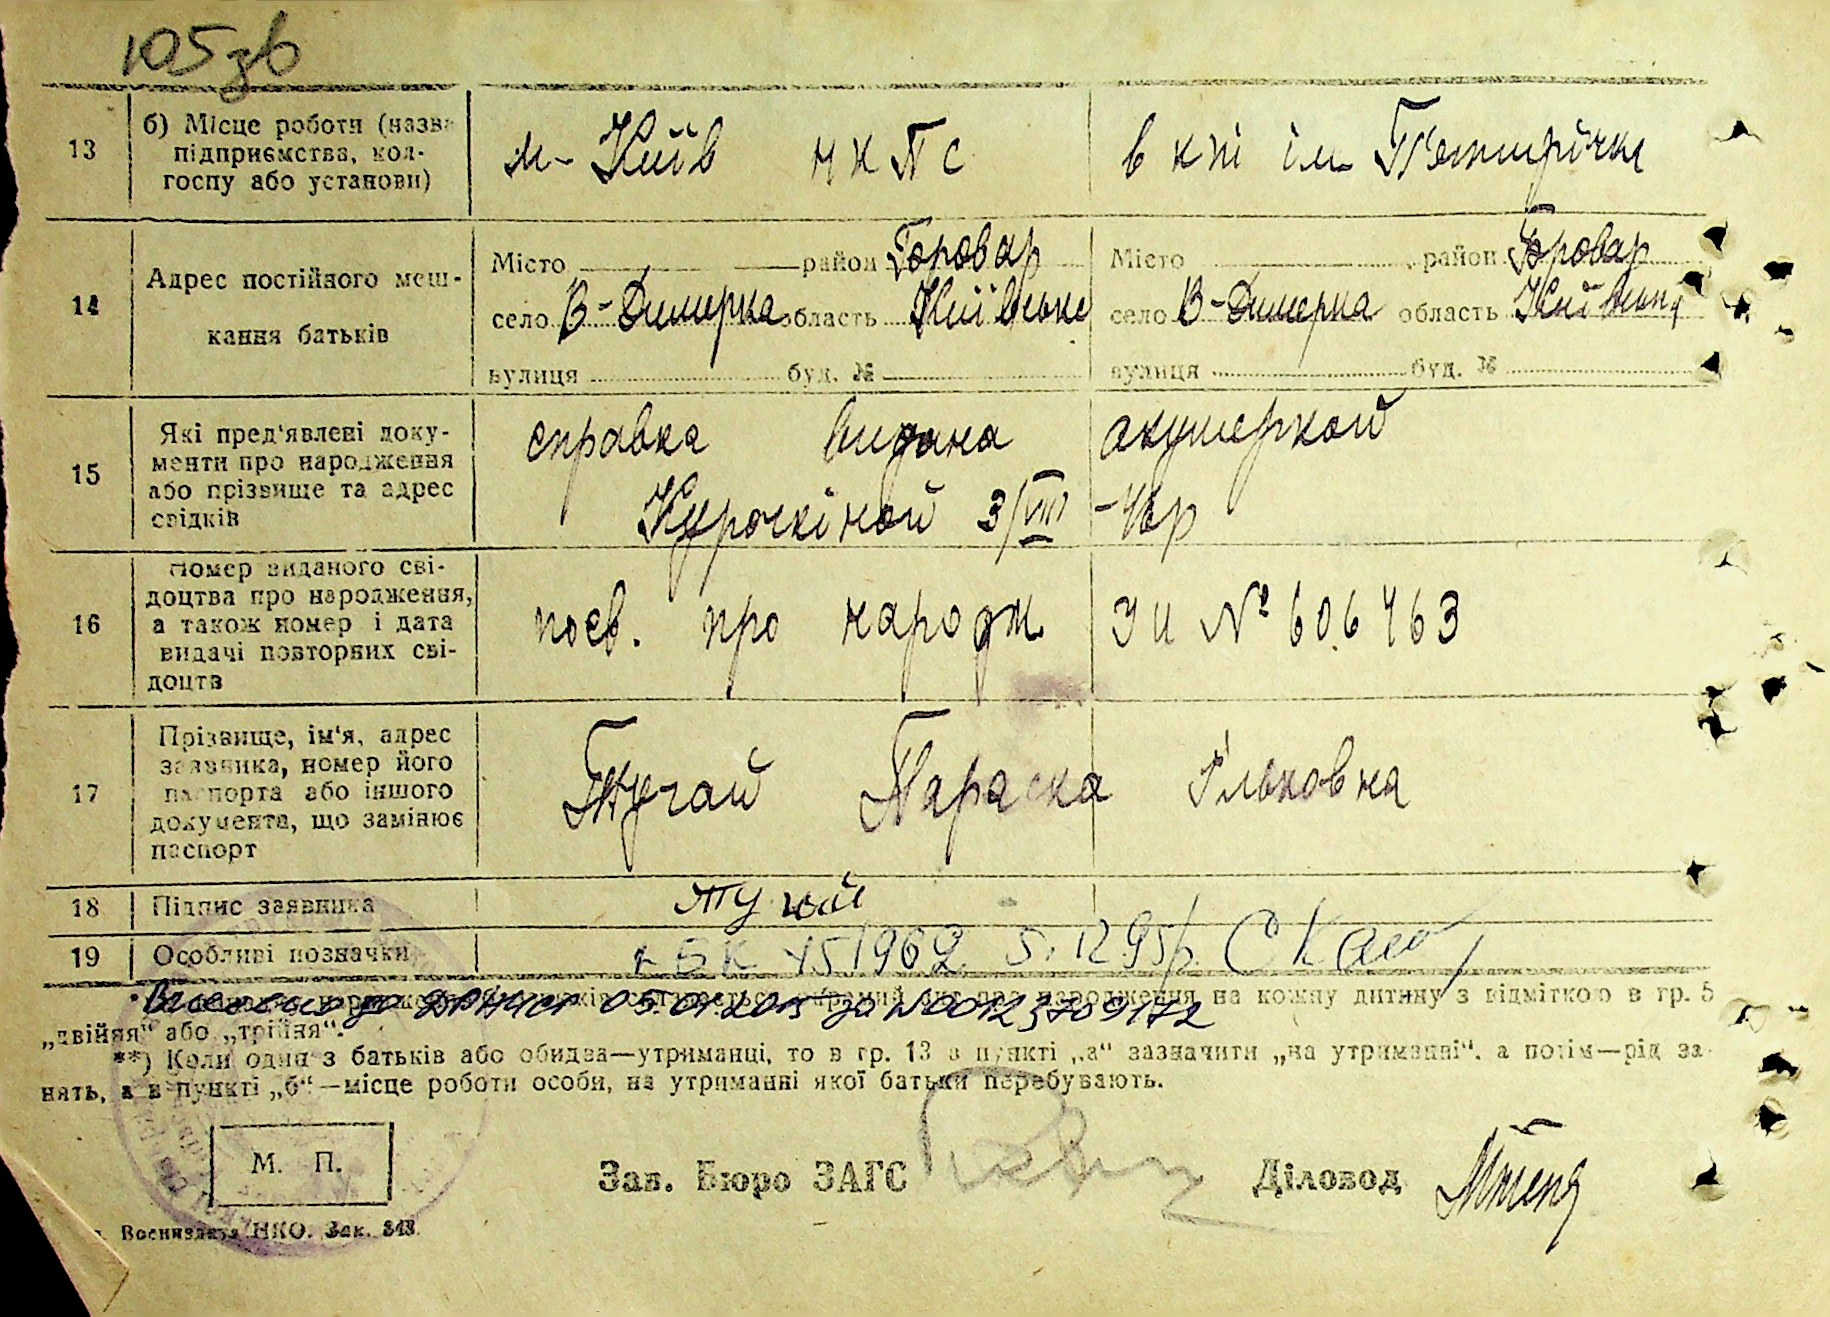 105 зв
13 б) Місце роботи (назва підприємства, кол-госпу або установи) м- Київ НКПС в кт ім Петирічка
14 Адрес постійного меш-
кання батьків
Місто район Боровар Місто район Бровар
село В-Димерка область Київське село В-Димерка область Київська
вулиця буд. № вулиця буд. №
15 Які пред'явлені доку-
менти про народження
або прізвище та адрес
свідків
справка видана акушеркой
Курочкіной 3/VIII -
16 Номер виданого сві-
доцтва про народження,
а також номер і дата
видачі повторних сві-
доцтв
посв. про народж № 606463
17 Прізвище, ім'я, адрес
заявника, номер його
паспорта або іншого
документа, що замінює
паспорт
Тугай Параска Ільковна
18 Підпис заявника Тугай
19 Особливі позначки
05.01.2015 за № 00123709172
народження на кожну дитину з відміткою в гр. 5
„двійня" або „трійня".
**) Коли один з батьків або обидва—утриманці, то в гр. 13 в пункті „а" зазначити „на утриманні", а потім—рід за-
нять, а в пункті „б"—місце роботи особи, на утриманні якої батьки перебувають.
М. П.
Зав. Бюро ЗАГС Діловод
НКО. Зак. 348